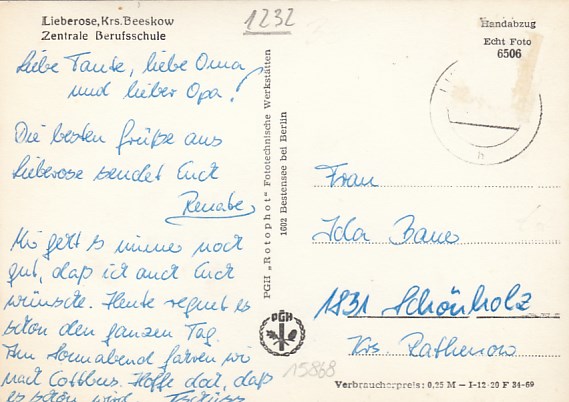 Lieberose, Krs. Beeskow
Zentrale Berufsschule
1232
Handabzug
Echt Foto
6506
Liebe Tante, liebe Oma
und lieber Opa!
Die besten Grüße aus
Lieberose sendet Euch
Renate.
Mir geht es immer noch
gut, daß ich auch Euch
wünsche. Heute regnet es
schon den ganzen Tag.
Am Sonnabend fahren wir
nach Cottbus. Hoffe doch, daß
es schön wird. Tschüss
PGH „Rotophot“ Fototechnische Werkstätten
1602 Bestensee bei Berlin
PGH
15868
Frau
Ida Bauer
1831 Schönholz
Krs. Rathenow
Verbraucherpreis: 0,25 M – I-12-20 F 34-69